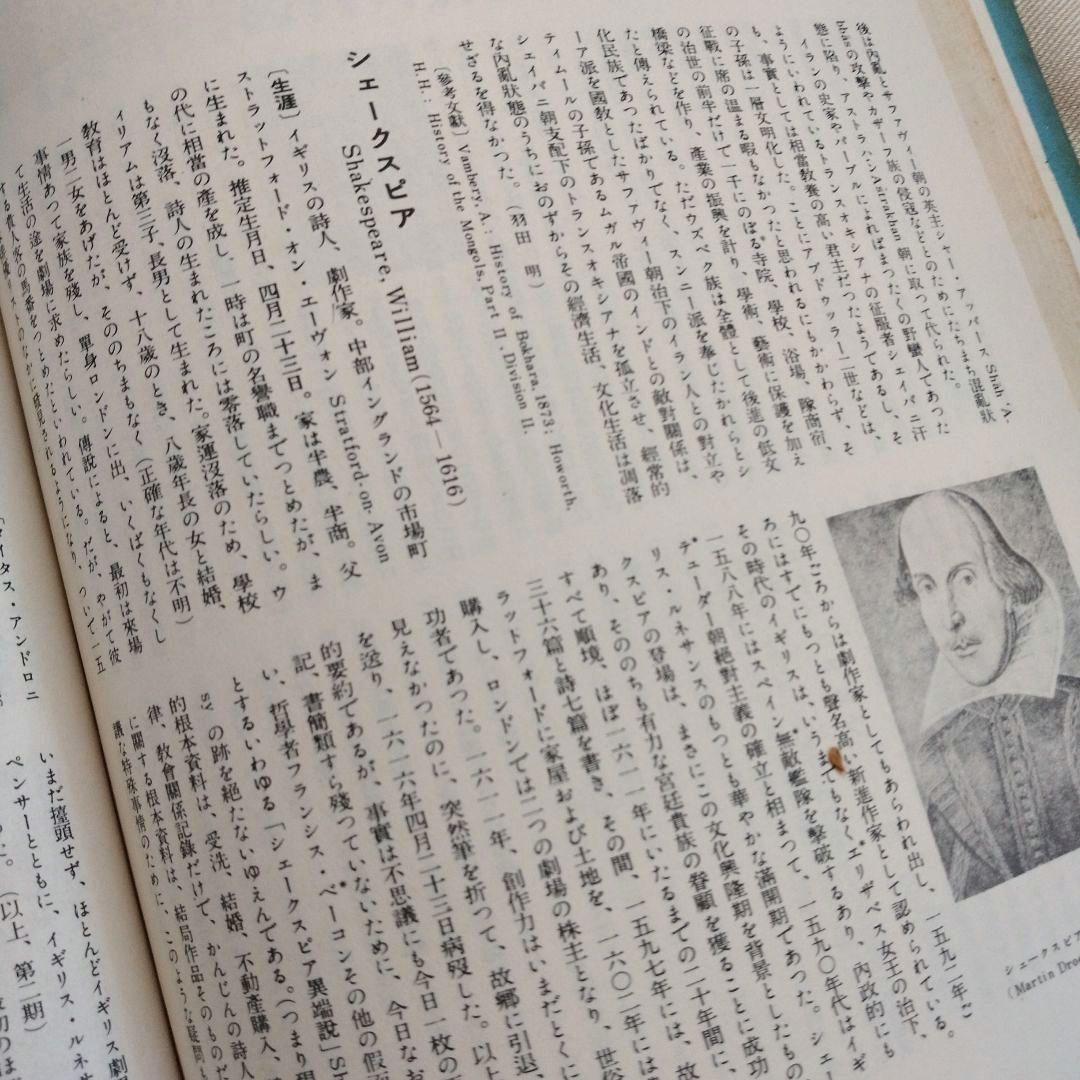 後は內亂とサファヴィー朝の英主シャー・アッバース Shāh 'A-
bbās の攻擊やカザーフ族の侵寇などとのためにたちまち混亂狀
態に陷り、アストラハン Astrakhan 朝に取つて代られた。
イランの史家やバーブルによればまつたくの野蠻人であった
ようにいわれているトランスオキシアナの征服者シェイバニ汗
も、事實としては相當教養の高い君主だつたようであるし、そ
の子孫は一層文明化した。ことにアブドゥッラー二世などは、
征戰に席の溫まる暇もなかつたと思われるにもかかわらず、そ
の治世の前半だけで一千にのぼる寺院、學校、浴場、隊商宿、
橋梁などを作り、產業の振興を計り、學術、藝術に保護を加え
たと傳えられている。ただウズベク族は全體として後進の低文
化民族であつたばかりでなく、スンニー派を奉じたかれらとシ
ーア派を國教としたサファヴィー朝治下のイラン人との對立や
ティムールの子孫であるムガル帝國のインドとの敵對關係は、
シェイバニ朝支配下のトランスオキシアナを孤立させ、經常的
な內亂狀態のうちにおのずからその經濟生活、文化生活は凋落
せざるを得なかつた。(羽田 明)
〔參考文獻〕 Vambery, A.: History of Bokhara, 1873; Howorth,
H. H.: History of the Mongols, Part II, Division II.
シェークスピア
Shakespeare, William (1564—1616)
〔生涯〕イギリスの詩人、劇作家。中部イングランドの市場町
ストラットフォード・オン・エーヴォン Stratford-on-Avon
に生まれた。推定生月日、四月二十三日。家は半農、半商。父
の代に相當の產を成し、一時は町の名譽職までつとめたが、ま
もなく沒落、詩人の生まれたころには零落していたらしい。ウ
ィリアムは第三子、長男として生まれた。家運沒落のため、學校
教育はほとんど受けず、十八歲のとき、八歲年長の女と結婚、
一男二女をあげたが、そののちまもなく(正確な年代は不明)
事情あつて家族を殘し、單身ロンドンに出、いくばくもなくし
て生活の途を劇場に求めたらしい。傳說によると、最初は來場
する貴人客の馬番をつとめたといわれている。だが、やがて彼
のなかに發見されるようになり、ついで一五
九〇年ごろからは劇作家としてもあらわれ出し、一五九二年ご
ろにはすでにもつとも聲名高い新進作家として認められている。
その時代のイギリスは、いうまでもなくエリザベス女王の治下、
一五八八年にはスペイン無敵艦隊を擊破するあり、內政的にも
テューダー朝絕對主義の確立と相まつて、一五九〇年代はイギ
リス・ルネサンスのもつとも華やかな滿開期であつた。シェー
クスピアの登場は、まさにこの文化興隆期を背景としたもの
あり、そののちも有力な宮廷貴族の眷顧を獲ることに成功
すべて順境、ほぼ一六一一年にいたるまでの二十年間に、
三十六篇と詩七篇を書き、その間、一五九七年には、故
ラットフォードに家屋および土地を、一六〇二年には
購入し、ロンドンでは二つの劇場の株主となり、世俗
功者であつた。一六一一年、創作力はいまだとくに
見えなかつたのに、突然筆を折つて、故鄉に引退、
を送り、一六一六年四月二十三日病歿した。以上
的要約であるが、事實は不思議にも今日一枚の
記、書簡類すら殘つていないために、今日なお
い、哲學者フランシス・ベーコンその他の假
とするいわゆる「シェークスピア異端說」Sh
sy の跡を絕たないゆえんである。(つまり現
的根本資料は、受洗、結婚、不動產購入、
律、教會關係記錄だけで、かんじんの詩人
に關する根本資料は、結局作品そのものだ
議な特殊事情のために、このような疑問も
シェークスピア
(Martin Droe
タイタス・アンドロニ
いまだ擡頭せず、ほとんどイギリス劇
ペンサーとともに、イギリス・ルネサ
(以上、第二期)